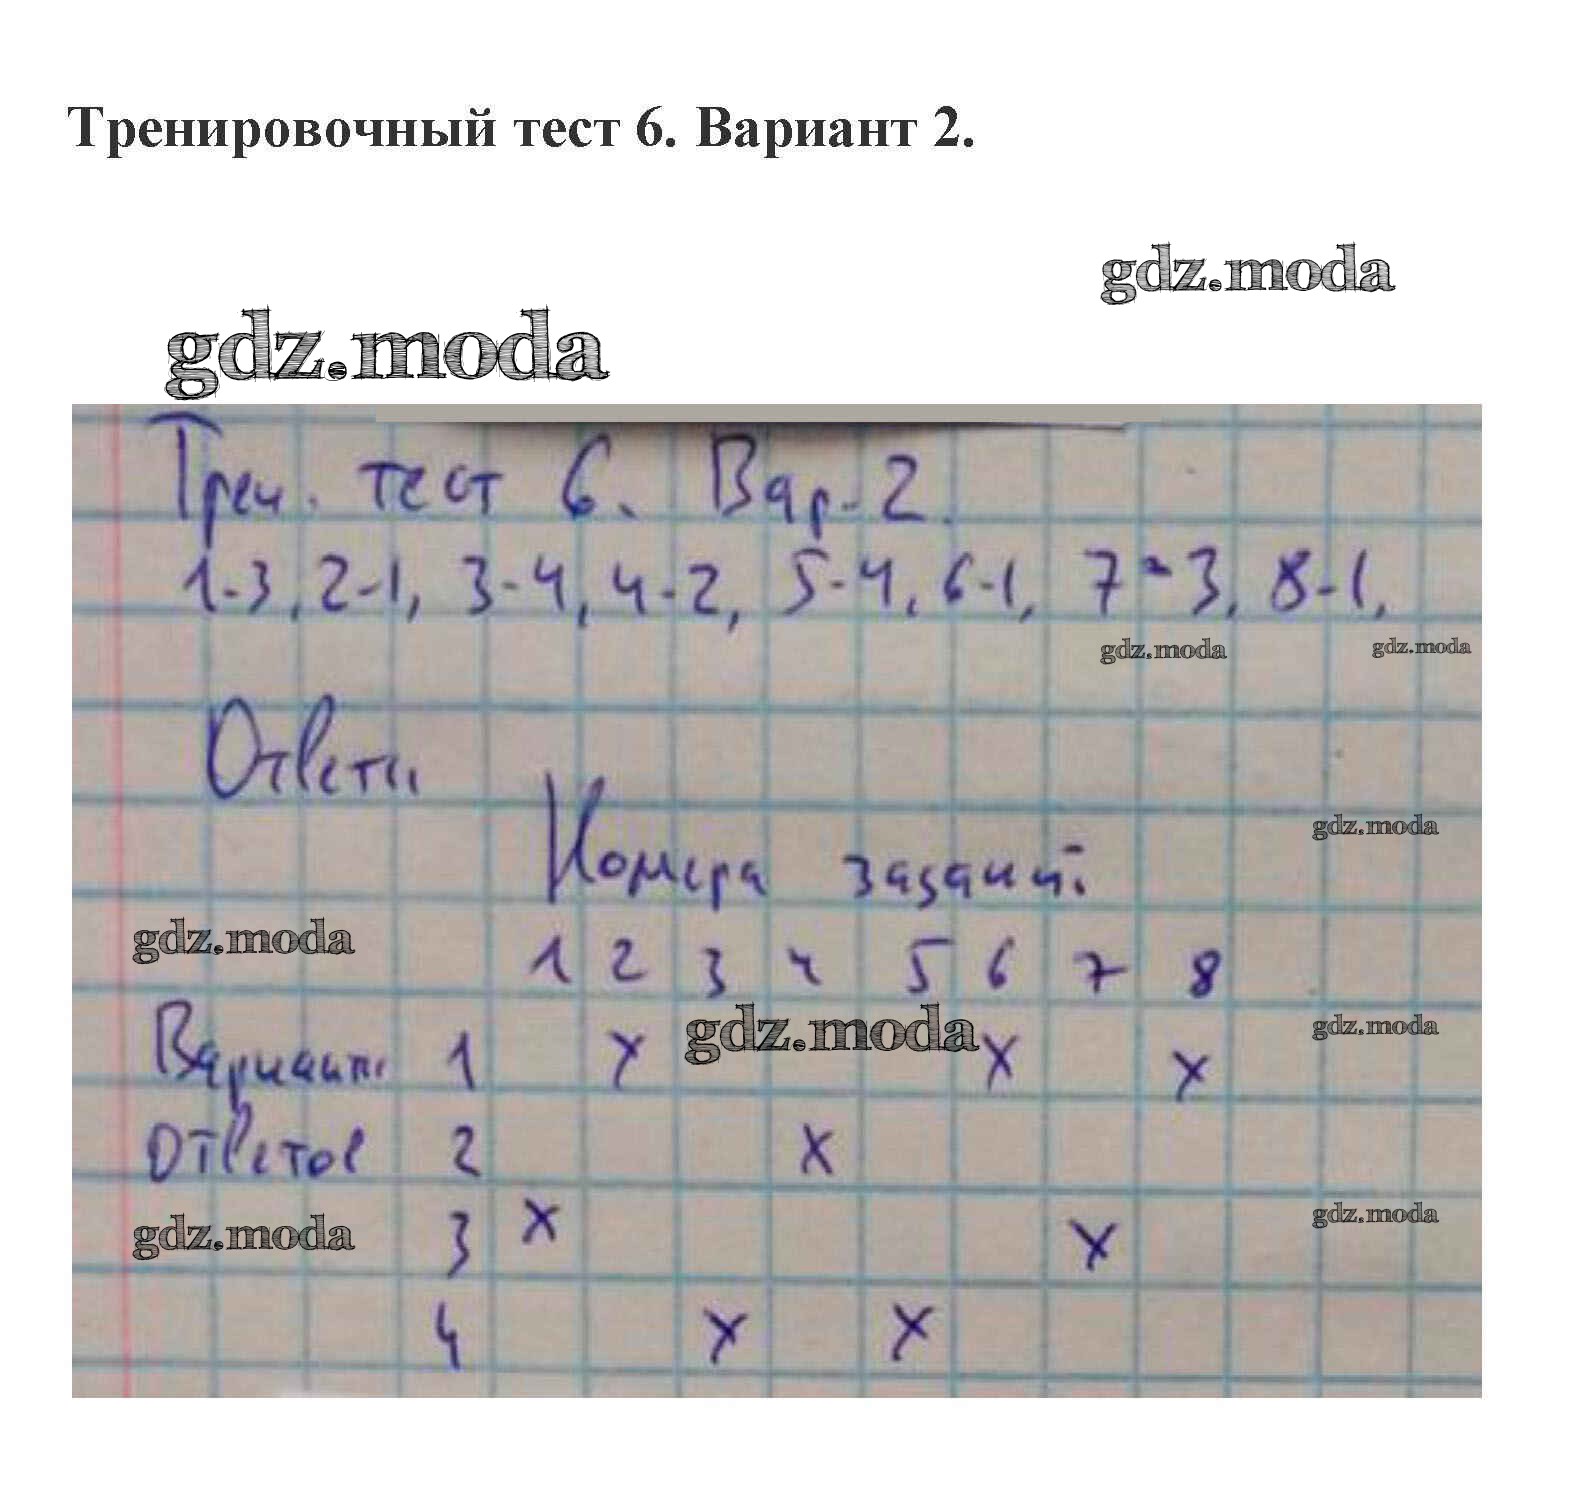 Тренировочный тест 6. Вариант 2.
gdz.moda
gdz.moda
Трен. тест 6. Вар-2.
1-3, 2-1, 3-4, 4-2, 5-4, 6-1, 7-3, 8-1,
gdz.moda gdz.moda
Ответы
Номера заданий:
gdz.moda
gdz.moda
1 2 3 4 5 6 7 8
gdz.moda
gdz.moda
Варианты 1 х х х
ответов 2 х
gdz.moda
gdz.moda
3 х х
4 х х